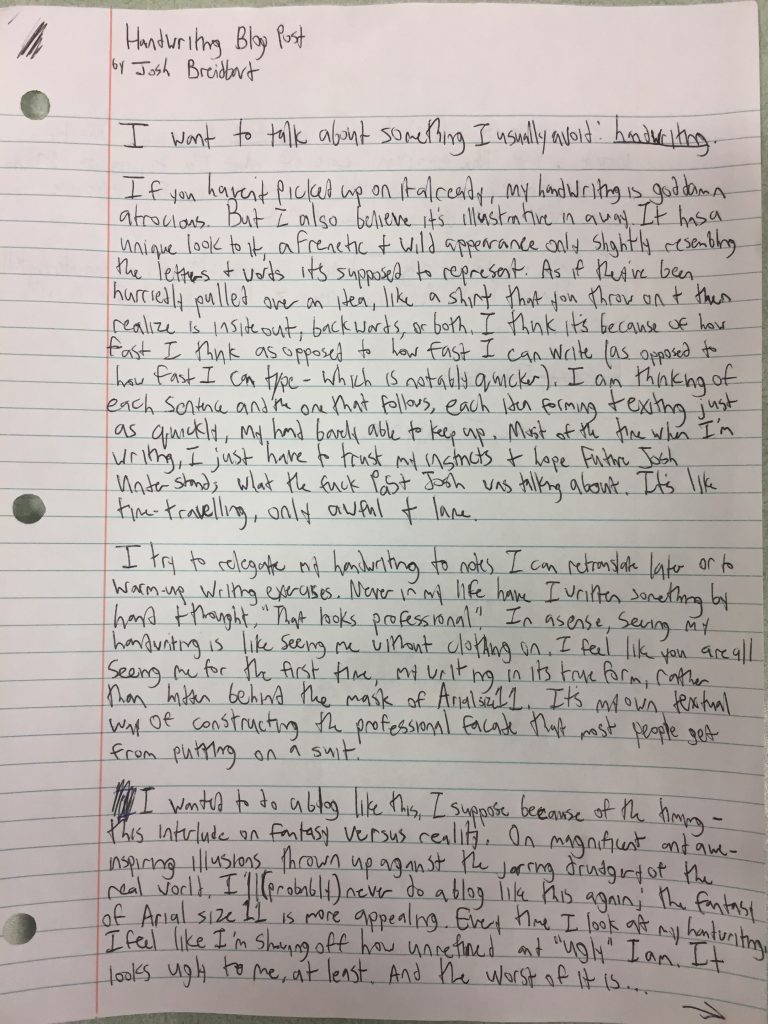 Handwriting Blog Post
by Josh Breidbart
I want to talk about something I usually avoid: handwriting.
If you haven't picked up on it already, my handwriting is goddamn
atrocious. But I also believe it's illustrative in a way. It has a
unique look to it, a frenetic + wild appearance only slightly resembling
the letters + words it's supposed to represent. As if they've been
hurriedly pulled over an idea, like a shirt that you throw on + then
realize is inside out, backwards, or both. I think it's because of how
fast I think as opposed to how fast I can write (as opposed to
how fast I can type - which is notably quicker). I am thinking of
each sentence and the one that follows, each idea forming + exiting just
as quickly, my hand barely able to keep up. Most of the time when I'm
writing, I just have to trust my instincts + hope Future Josh
understands what the fuck Past Josh was talking about. It's like
time-travelling, only awful + lame.
I try to relegate my handwriting to notes I can retranslate later or to
warm-up writing exercises. Never in my life have I written something by
hand + thought, "That looks professional". In a sense, seeing my
handwriting is like seeing me without clothing on. I feel like you are all
seeing me for the first time, my writing in its true form, rather
than hidden behind the mask of Arial size 11. It's my own textual
way of constructing the professional facade that most people get
from putting on a suit.
I wanted to do a blog like this, I suppose because of the timing -
this interlude on fantasy versus reality. On magnificent and awe-
inspiring illusions thrown up against the jarring drudgery of the
real world. I'll (probably) never do a blog like this again; the fantasy
of Arial size 11 is more appealing. Every time I look at my handwriting,
I feel like I'm showing off how unrefined and "ugly" I am. It
looks ugly to me, at least. And the worst of it is...